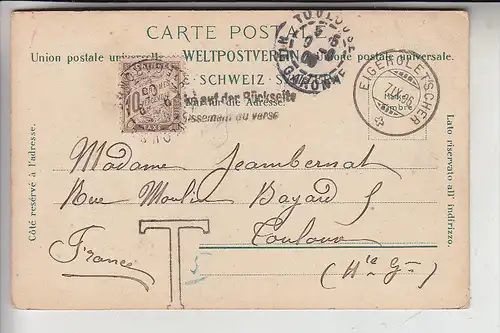 CARTE POSTALE
Union postale universelle. WELTPOSTVEREIN Unione postale universale.
SCHWEIZ
für die Adresse.
auf der Rückseite
au verso
TOULOUSE
GARONNE
EIGERGLETSCHER
7.IX.06
timbre
10
Côté reservé à l'adresse.
Lato riservato all' indirizzo.
Madame Jeambernat
Rue Moulin Bayard 5
Toulouse
France
(Hte Gne)
T
5